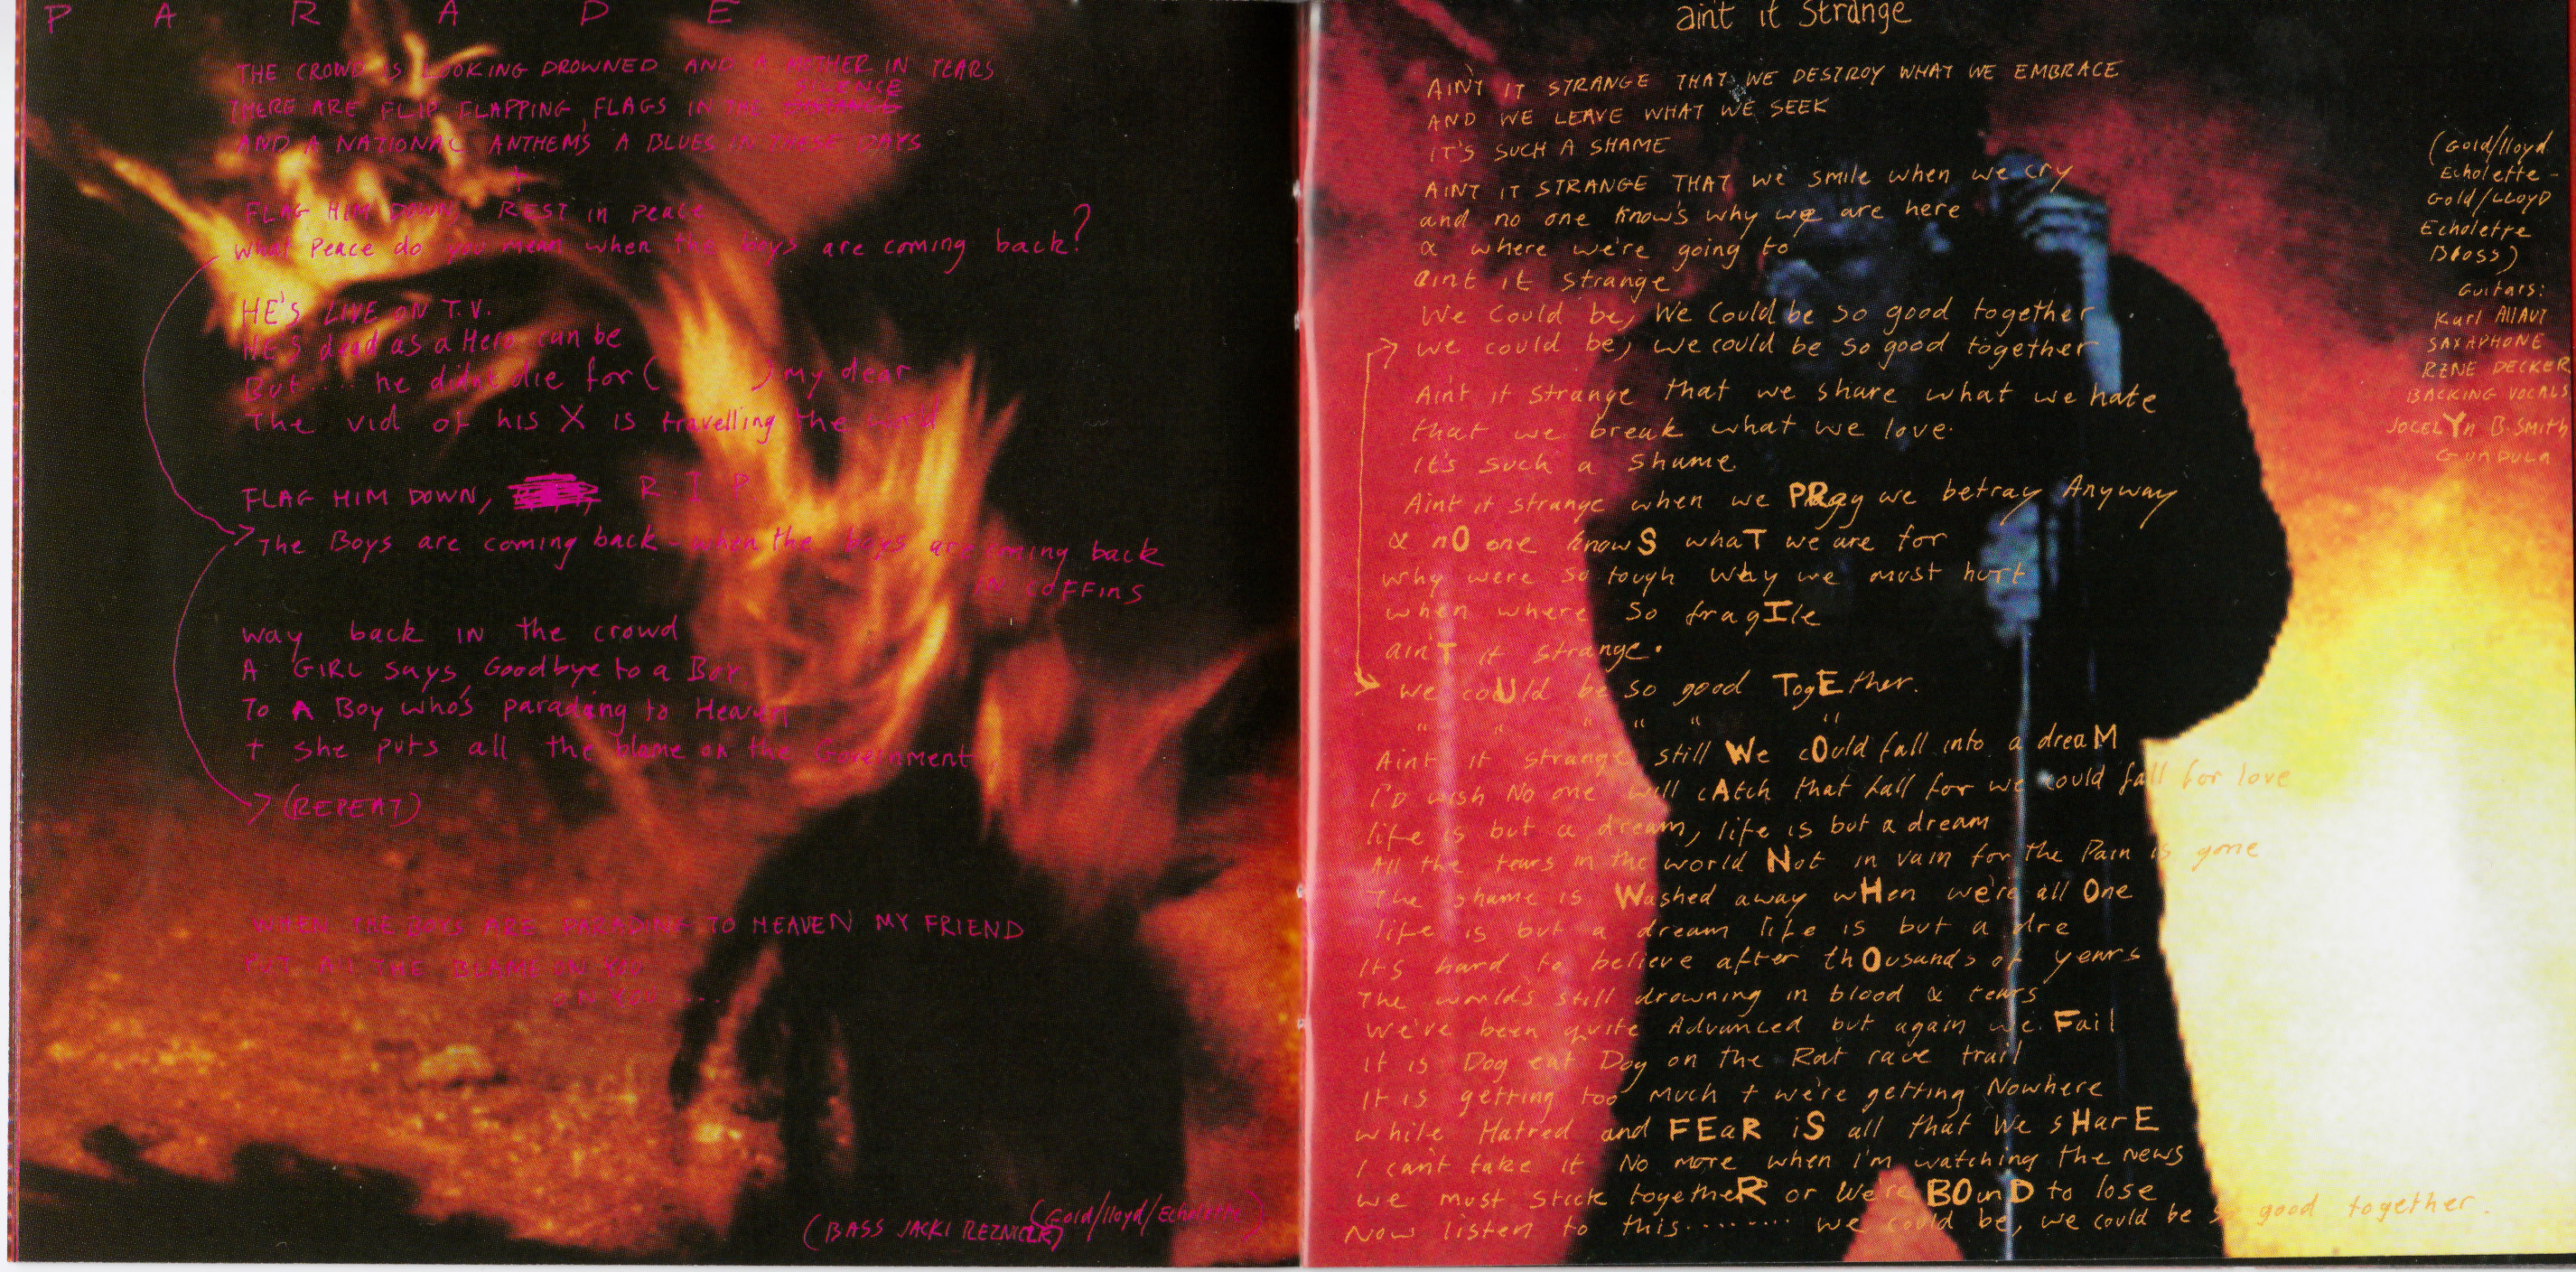 PARADE
THE CROWD IS LOOKING DROWNED AND A MOTHER IN TEARS
SILENCE
THERE ARE FLIP FLAPPING FLAGS IN THE
AND A NATIONAL ANTHEM'S A BLUES IN THESE DAYS
+
FLAG HIM DOWN, REST in peace
what Peace do you mean when the boys are coming back?
HE'S LIVE ON T.V.
HE'S dead as a Hero can be
But ... he didnt die for ( ) my dear
The vid of his X is travelling the world
FLAG HIM DOWN, R I P
The Boys are coming back - when the boys are coming back
IN COFFINS
way back IN the crowd
A GIRL says Goodbye to a Boy
To A Boy who's parading to Heaven
+ she puts all the blame on the Government
(REPEAT)
WHEN THE BOYS ARE PARADING TO HEAVEN MY FRIEND
PUT All THE BLAME ON YOU
ON YOU ....
(Gold/lloyd/Echolette)
(BASS JACKI REZNICEK)
aint it Strange
AIN'T IT STRANGE THAT WE DESTROY WHAT WE EMBRACE
AND WE LEAVE WHAT WE SEEK
IT'S SUCH A SHAME
AINT IT STRANGE THAT we smile when we cry
and no one know's why we are here
& where we're going to
aint it strange
We Could be, We Could be so good together
we could be, we could be so good together
Aint it strange that we share what we hate
that we break what we love.
It's such a shame.
Aint it strange when we PRay we betray Anyway
& nO one knowS whaT we are for
why were so tough why we must hurt
when where so fragIle
ain'T it strange.
We coUld be so good TogEther.
" " " " " "
Aint it strange still We cOuld fall into a dreaM
I'D wish No one will cAtch that fall for we could fall for love
life is but a dream, life is but a dream
All the tears in the world Not in vain for the Pain is gone
The shame is Washed away wHen we're all One
life is but a dream life is but a dre
Its hard to believe after thOusands of years
The worlds still drowning in blood & tears
We've been quite Advanced but again we Fail
It is Dog eat Dog on the Rat race trail
It is getting too much + we're getting Nowhere
while Hatred and FEaR iS all that We sHarE
I can't take it No more when I'm watching the news
we must stick togetheR or We're BOunD to lose
Now listen to this......... we could be, we could be so good together.
(Gold/lloyd
Echolette -
Gold/LLOYD
Echolette
Bloss)
Guitars:
Karl AllAUT
SAXAPHONE
RENE DECKER
BACKING VOCALS
JOCELYn B. SMith
GUNDULA